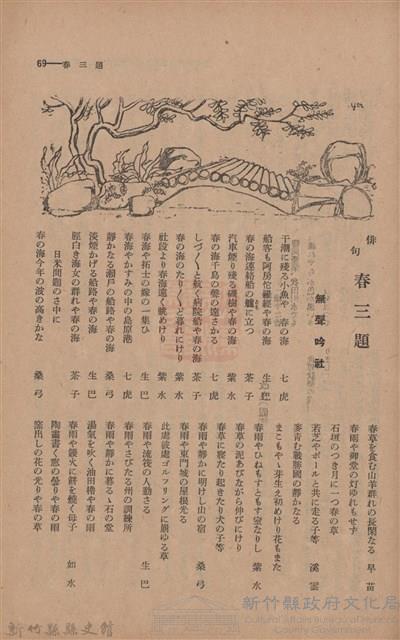 69——春三題
俳句 春三題
無聲吟社
干潮に殘る小魚や 春の海 七虎
船客も阿房佗羅經や春の海 生巴
春の海連絡船の艫に立つ 七虎
汽車煙り殘る磯樹や春の海 紫水
春の海千鳥の聲の遠さかる 紫水
しづ〱と航く病院船や春の海 茶子
春の海のたり〱と暮れにけり 紫水
社段より春海遠く眺めけり 紫水
春海や拓士の嫁の一集ひ 生巴
春海やかすみの中の島原港 七虎
靜かなる瀨戸の船路や春の海 桑弓
淡煙かげる船路や春の海 生巴
脛白き海女の群れや春の海 茶子
日米問題のさ中に
春の海今年の波の高きかな 桑弓
春草を食む山羊群れの長閑なる 早苗
春雨や御堂の灯ゆれもせず
石垣のつき月に一つ春の草
若芝やボールと共に走る子等 溪雲
麥靑む戰勝國の靜かなる
まこもやゝ芽生え初めけり花もまた
春雨やひねもすともす窓なりし 紫水
春草の泥あびながら伸びにけり
春草に寢たり起きたり犬の子等
春雨や靜かに明けし山の宿 桑弓
春雨や東門城の屋根光る
此處彼處ゴルフリングに萠ゆる草
春雨や流筏の人動さる 生巴
春雨やさびたる州の訓練所
春雨や靜かに暮るゝ石の堂
湯氣を吹く油田櫓や春の雨
春雨や饌火に餅を燒く母子
陶畵書く窓の曇りや春の雨 如水
窓出しの花の光りや春の草
新竹縣縣史館
新竹縣政府文化局
Cultural Affairs Bureau of Hsinchu County Government